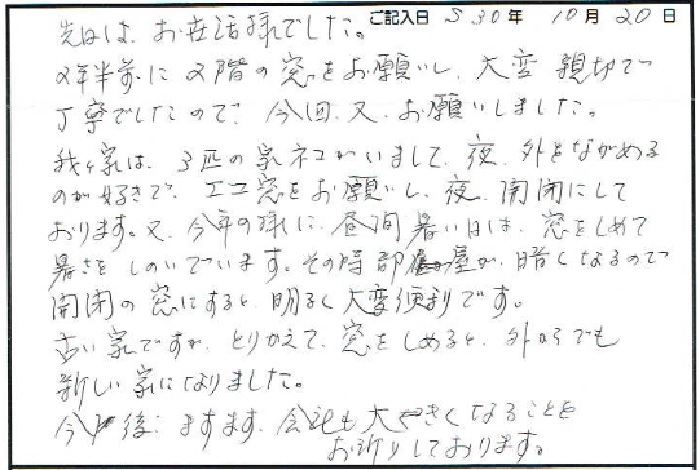 ご記入日 S30年 10月20日
先日は、お世話様でした。
2年半前に2階の窓をお願いし、大変親切で
丁寧でしたので、今回、又、お願いしました。
我が家は、3匹の家ネコがいまして、夜、外をながめる
のが好きで、エコ窓をお願いし、夜、開閉にして
おります。又、今年の様に、昼間暑い日は、窓をしめて
暑さをしのいでいます。その時部屋が、暗くなるので
開閉の窓にすると、明るく大変便利です。
古い家ですが、とりかえて、窓をしめると、外からでも
新しい家になりました。
今後、ますます、会社も大きくなることを
お祈りしております。